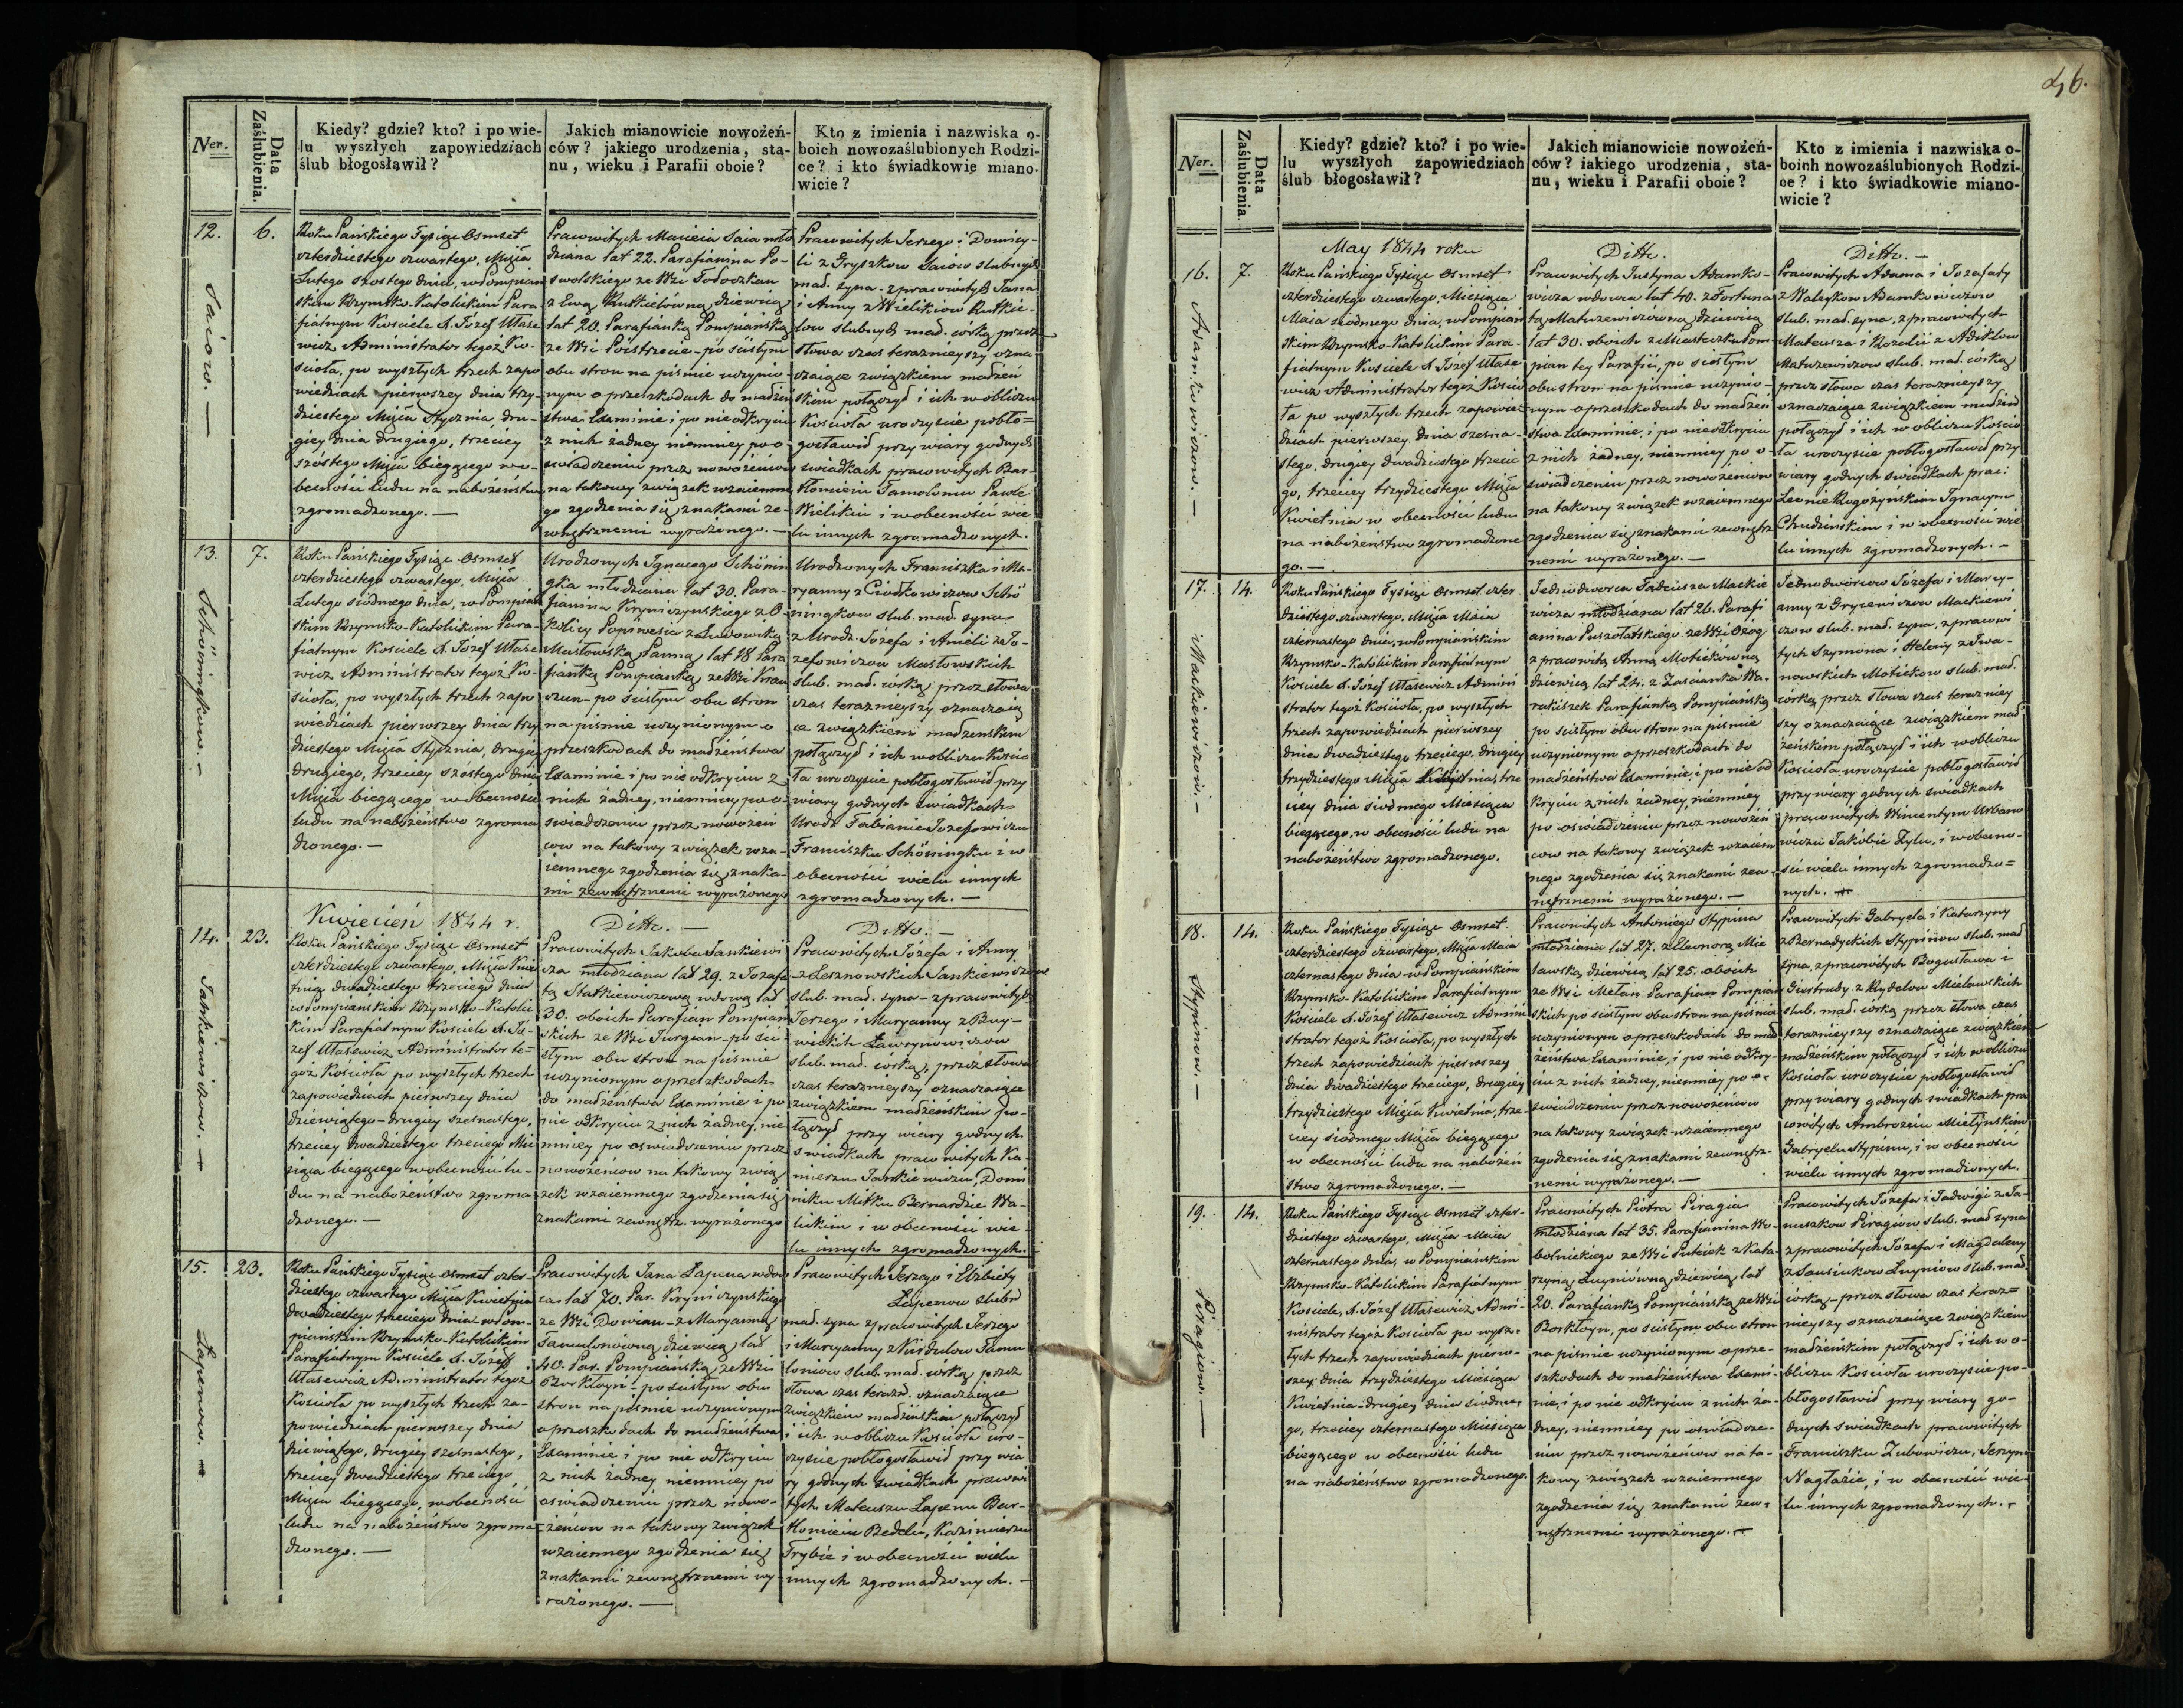 Ner.
Data
Zaślubienia.
Kiedy? gdzie? kto? i po wie-
lu wyszłych zapowiedziach
ślub błogosławił?
Jakich mianowicie nowożeń-
ców? jakiego urodzenia, sta-
nu, wieku i Parafii oboie?
Kto z imienia i nazwiska o-
boich nowozaślubionych Rodzi-
ce? i kto świadkowie miano-
wicie?
12.
Saiow. —
6.
Roku Pańskiego Tysiąc Osmset
czterdziestego czwartego, Msca
Lutego szostego dnia, w Pompian
skim Rzymsko-Katolickim Para-
fialnym Kościele X. Józef Utase
wicz Administrator tegoż Ko-
ścioła, po wyszłych trzech zapo
wiedziach pierwszey dnia trzy-
dziestego Msca Stycznia, dru-
giey dnia drugiego, trzeciey
szóstego Msca bieżącego w o-
becności Ludu na nabożeństwo
zgromadzonego. —
Pracowitych Macieia Saia mło
dziana lat 22. Parafianina Po-
swolskiego ze Wsi Toboczkan
z Ewą Rutkielówną, dziewicą
lat 20. Parafianką Pompiańską
ze Wsi Poistrocie – po ścisłym
obu stron na piśmie uczynio-
nym o przeszkodach do małżeń
stwa Examinie, i po nieodkryciu
z nich żadney niemniey po o-
świadczeniu przez nowożeńcow
na takowy związek wzaiemne
go zgodzenia się, znakami ze-
wnętrznemi wyrażonego. —
Pracowitych Jerzego i Domicy-
li z Gryszkow Saiow ślubnych
mał. syna – z pracowitych Jana
i Anny z Wielikow Rutkie-
low ślubnych mał. córką, przez
słowa czas teraznieyszy ozna
czaiące związkiem małżeń
skim połączył i ich w obliczu
Kościoła uroczyście pobło=
gosławił przy wiary godnych
świadkach pracowitych Bar-
tłomieiu Tamolonu Pawle
Wielikiu i w obecności wie
lu innych zgromadzonych.
13.
Schöningkow. —
7.
Roku Pańskiego Tysiąc Osmset
czterdziestego czwartego, Msca
Lutego siódmego dnia, w Pompian
skim Rzymsko-Katolickim Para-
fialnym Kościele X. Józef Utase
wicz Administrator tegoż Ko-
ścioła, po wyszłych trzech zapo
wiedziach pierwszey dnia trzy
dziestego Msca Stycznia, drugiey
drugiego, trzeciey szóstego dnia
Msca bieżącego w obecności
ludu na nabożeństwo zgroma
dzonego. —
Urodzonych Ignacego Schönin
gka młodziana lat 30. Para-
fianina Kryniczynskiego z O-
kolicy Popiwesia z Ludowiką
Masłowską Panną, lat 18 Para
fianką Pompiańską ze Wsi
po ścisłym obu stron
na piśmie uczynionym o
przeszkodach do małżeństwa
Examinie i po nie odkryciu z
nich żadney, niemniey po o-
świadczeniu przez nowożeń
cow na takowy związek wza-
iemnego zgodzenia się, znaka-
mi zewnętrznemi wyrażonego
Urodzonych Franciszka i Ma-
ryanny z Ciodkowiczow Schö
ningkow ślub. mał. syna
z Urodz. Jozefa i Anieli ze Jo-
zefowiczow Masłowskich
ślub. mał. córką, przez słowa
czas teraznieyszy oznaczaią
ce związkiem małżenskim
połączył i ich w obliczu Kościo
ła uroczyście pobłogosławił przy
wiary godnych świadkach
Urodz. Fabianie Jozefowiczu
Franciszku Schöningku i w
obecności wielu innych
zgromadzonych. —
Kwiecień 1844 r.
Ditto. —
Ditto. —
14.
Jankiewiczow. —
23.
Roku Pańskiego Tysiąc Osmset
czterdziestego czwartego, Msca Kwie
tnia dwudziestego trzeciego dnia
w Pompiańskim Rzymsko-Katolic
kim Parafialnym Kościele X. Jó-
zef Utasewicz Administrator te=
goż Kościoła po wyszłych trzech
zapowiedziach pierwszey dnia
dziewiątego – drugiey szesnastego,
trzeciey dwudziestego trzeciego Mie
siąca bieżącego w obecności lu-
du na nabożeństwo zgroma
dzonego. —
Pracowitych Jakuba Jankiewi
cza młodziana lat 29. z Jozafa
tą Statkiewiczową wdową lat
30. oboich Parafian Pompian
skich ze Wsi Jurgian – po ści-
słym obu stron na piśmie
uczynionym o przeszkodach
do małżeństwa Examinie i po
nie odkryciu z nich żadney, nie
mniey po oświadczeniu przez
nowożeńcow na takowy zwią
zek wzaiemnego zgodzenia się
znakami zewnętrz. wyrażonego
Pracowitych Józefa i Anny
z Lesznowskich Jankiewiczow
ślub. mał. syna – z pracowitych
Jerzego i Maryanny z Buy-
wickich Ławrynowiczow
ślub. mał. córką, przez słowa
czas teraznieyszy oznaczaiące
związkiem małżeńskim po-
łączył przy wiary godnych
świadkach pracowitych Ka-
mierzu Jankiewiczu, Domi
niku Mitku Bernardzie Wa-
lickim i w obecności wie-
lu innych zgromadzonych.
15.
Łapenow. —
23.
Roku Pańskiego Tysiąc Osmset czter-
dziestego czwartego Msca Kwietnia
dwudziestego trzeciego dnia w Pom-
piańskim Rzymsko-Katolickim
Parafialnym Kościele X. Józef
Utasewicz Administrator tegoż
Kościoła po wyszłych trzech za-
powiedziach pierwszey dnia
dziewiątego, drugiey szesnastego,
trzeciey dwudziestego trzeciego
Msca bieżącego, w obecności
ludu na nabożeństwo zgroma
dzonego. —
Pracowitych Jana Łapena wdow
ca lat 70. Par. Kryniczynskiego
ze Wsi Dowian – z Maryanną
Tamulonówną, dziewicą, lat
40. Par. Pompiańską, ze Wsi
Borkłoyń – po ścisłym obu
stron na piśmie uczynionym
o przeszkodach do małżeństwa
Examinie i po nie odkryciu
z nich żadney niemniey po
oświadczeniu przez nowo-
żeńcow na takowy związek
wzaiemnego zgodzenia się
znakami zewnętrznemi wy-
rażonego. —
Pracowitych Jerzego i Elżbiety
Łapenow ślubn
mał. syna z pracowitych Jerzego
i Maryanny z Nurdulow Tamu
loniow ślub. mał. córką, przez
słowa czas terazn. oznaczaiące
związkiem małżeńskim połączył
i ich w obliczu Kościoła uro-
czyście pobłogosławił przy wia
ry godnych świadkach pracowi
tych Mateuszu Łapenu Bar-
tłomieiu Beddu, Kazimierzu
Trybie i w obecności wielu
innych zgromadzonych. —
46.
Ner.
Data
Zaślubienia.
Kiedy? gdzie? kto? i po wie-
lu wyszłych zapowiedziach
ślub błogosławił?
Jakich mianowicie nowożeń-
ców? iakiego urodzenia, sta-
nu, wieku i Parafii oboie?
Kto z imienia i nazwiska o-
boich nowozaślubionych Rodzi-
ce? i kto świadkowie miano-
wicie?
May 1844 roku
Ditto.
Ditto. —
16.
Adamkowiczow. —
7.
Roku Pańskiego Tysiąc Osmset
czterdziestego czwartego, Miesiąca
Maia siodmego dnia, w Pompian
skim Rzymsko-Katolickim Para-
fialnym Kościele X. Józef Utase
wicz Administrator tegoż Kościo
ła po wyszłych trzech zapowie-
dziach pierwszey dnia szesna-
stego, drugiey dwudziestego trzecie
go, trzeciey trzydziestego Msca
Kwietnia w obecności ludu
na nabożeństwo zgromadzone
go. —
Pracowitych Justyna Adamko-
wicza wdowca lat 40. z Fortuna
tą Matuzewiczowną, dziewicą
lat 30. oboich z Miasteczka Pom
pian tey Parafii, po ścisłym
obu stron na piśmie uczynio-
nym o przeszkodach do małżeń
stwa Examinie, i po nieodkryciu
z nich żadney, niemniey po o-
świadczeniu przez nowożeńcow
na takowy związek wzaiemnego
zgodzenia się, znakami zewnętrz
nemi wyrażonego. —
Pracowitych Adama i Jozafaty
z Waleykow Adamkowiczow
ślub. mał. syna, z pracowitych
Mateusza i Rozalii z Adiklow
Matuzewiczow ślub. mał. córką
przez słowa czas teraznieyszy
oznaczaiące związkiem małżeń
połączył i ich w obliczu Kościo
ła uroczyście pobłogosławił przy
wiary godnych świadkach prac:
Leonie Rogożyńskim Ignacym
Chudzińskim i w obecności wie
lu innych zgromadzonych. —
17.
Mackiewiczow. —
14.
Roku Pańskiego Tysiąc Osmset czter
dziestego czwartego, Msca Maia
czternastego dnia, w Pompianskim
Rzymsko-Katolickim Parafialnym
Kościele X. Jozef Utasewicz Admini
strator tegoż Kościoła, po wyszłych
trzech zapowiedziach pierwszey
dnia dwudziestego trzeciego, drugiey
trzydziestego Msca Kwietnia, trze
ciey dnia siodmego Miesiąca
bieżącego, w obecności ludu na
nabożeństwo zgromadzonego.
Jednodworca Tadeusza Mackie
wicza młodziana lat 26. Parafi
anina Puszołatskiego ze Wsi Ożog
z pracowitą Anną Motiekówną
dziewicą lat 24. z Zaścianka Wa-
rakiszek Parafianką Pompiańską
po ścisłym obu stron na piśmie
uczynionym o przeszkodach do
małżeństwa Examinie, i po nie od
kryciu z nich żadney, niemniey
po oświadczeniu przez nowożeń
cow na takowy związek wzaiem
nego zgodzenia się, znakami zew-
nętrznemi wyrażonego. —
Jednodworcow Józefa i Mary-
anny z Grycewiczow Mackiewi
czow ślub. mał. syna, z pracowi
tych Szymona i Heleny z Iwa-
nowskich Motiekow ślub. mał.
córką, przez słowa czas terazniey
szy oznaczaiące związkiem mał
żeńskim połączył i ich w obliczu
Kościoła uroczyście pobłogosławił
przy wiary godnych świadkach
pracowitych Wincentym Urbano
wiczu Jakóbie Zylu, i w obecno-
ści wielu innych zgromadzo=
nych. —
18.
Stypinow. —
14.
Roku Pańskiego Tysiąc Osmset
czterdziestego czwartego, Msca Maia
czternastego dnia w Pompiańskim
Rzymsko-Katolickim Parafialnym
Kościele X. Józef Utasewicz Admini
strator tegoż Kościoła, po wyszłych
trzech zapowiedziach pierwszey
dnia dwudziestego trzeciego, drugiey
trzydziestego Msca Kwietnia, trze-
ciey siodmego Msca bieżącego
w obecności ludu na nabożeń
stwo zgromadzonego. —
Pracowitych Antoniego Stypina
młodziana lat 27. z Eleonorą Mie
lawską, dziewicą lat 25. oboich
ze Wsi Metan Parafian Pompian
skich po ścisłym obu stron na piśmie
uczynionym o przeszkodach do mał
żeństwa Examinie, i po nie odkry-
ciu z nich żadney, niemniey po o-
świadczeniu przez nowożeńcow
na takowy związek wzaiemnego
zgodzenia się, znakami zewnętrz-
nemi wyrażonego. —
Pracowitych Gabryela i Katarzyny
z Bernadyckich Stypinow ślub. mał
syna, z pracowitych Bogusława i
Giertrudy z Rydelow Mielawskich
ślub. mał. córką przez słowa czas
teraznieyszy oznaczaiące związkiem
małżeńskim połączył i ich w obliczu
Kościoła uroczyście pobłogosławił
przy wiary godnych świadkach pra
cowitych Ambrożeiu Mietyńskim
Gabryelu Stypinu, i w obecności
wielu innych zgromadzonych.
19.
Piragiow. —
14.
Roku Pańskiego Tysiąc Osmset czter-
dziestego czwartego, Msca Maia
czternastego dnia, w Pompiańskim
Rzymsko-Katolickim Parafialnym
Kościele, X. Józef Utasewicz Admi-
nistrator tegoż Kościoła po wysz-
łych trzech zapowiedziach pierw-
szey dnia trzydziestego Miesiąca
Kwietnia – drugiey dnia siodme-
go, trzeciey czternastego Miesiąca
bieżącego w obecności ludu
na nabożeństwo zgromadzonego.
Pracowitych Piotra Piragia
młodziana lat 35. Parafianina Wo-
bolnickiego ze Wsi Puteiok z Kata-
rzyną Łuyniówną, dziewicą lat
20. Parafianką Pompiańską ze Wsi
Borkłoyn, po ścisłym obu stron
na piśmie uczynionym o prze-
szkodach do małżeństwa Exami-
nie, i po nie odkryciu z nich ża-
dney, niemniey po oświadcze-
niu przez nowożeńcow na ta-
kowy związek wzaiemnego
zgodzenia się znakami zew-
nętrznemi wyrażonego. —
Pracowitych Jozefa i Jadwigi z Ja-
nuszkow Piragiow ślub. mał syna
z pracowitych Józefa i Magdaleny
z Sausiukow Łuyniow ślub. mał.
córką, – przez słowa czas teraz=
nieyszy oznaczaiące związkiem
małżeńskim połączył i ich w o-
bliczu Kościoła uroczyście po-
błogosławił przy wiary go-
dnych świadkach pracowitych
Franciszku Zubowiczu, Jerzym
Nagłazie, i w obecności wie-
lu innych zgromadzonych. —